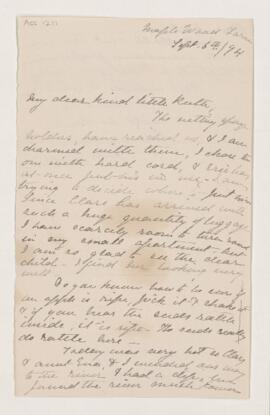 Acc 1211
Maple Wood Farm
Sept. 6th/94
My dear kind little Ruth,
The netting
holders, have reached us, & I am
charmed with them, I chose the
one with hard cord, & it is
at once put into use. I am
trying to decide where - just now
Since Clara has arrived with
such a huge quantity of luggage
I have scarcely room to turn round
in my small apartment - but
I am so glad to see the dear
child - I find her looking very
well.
Do you know how to be sure if
an apple is ripe, pick it & shake it
& if you hear the seeds rattle
inside, it is ripe - The seeds really
do rattle here -
Today was very hot so Clara
& aunt Eva, & I went
to the river. I had a
found the river much